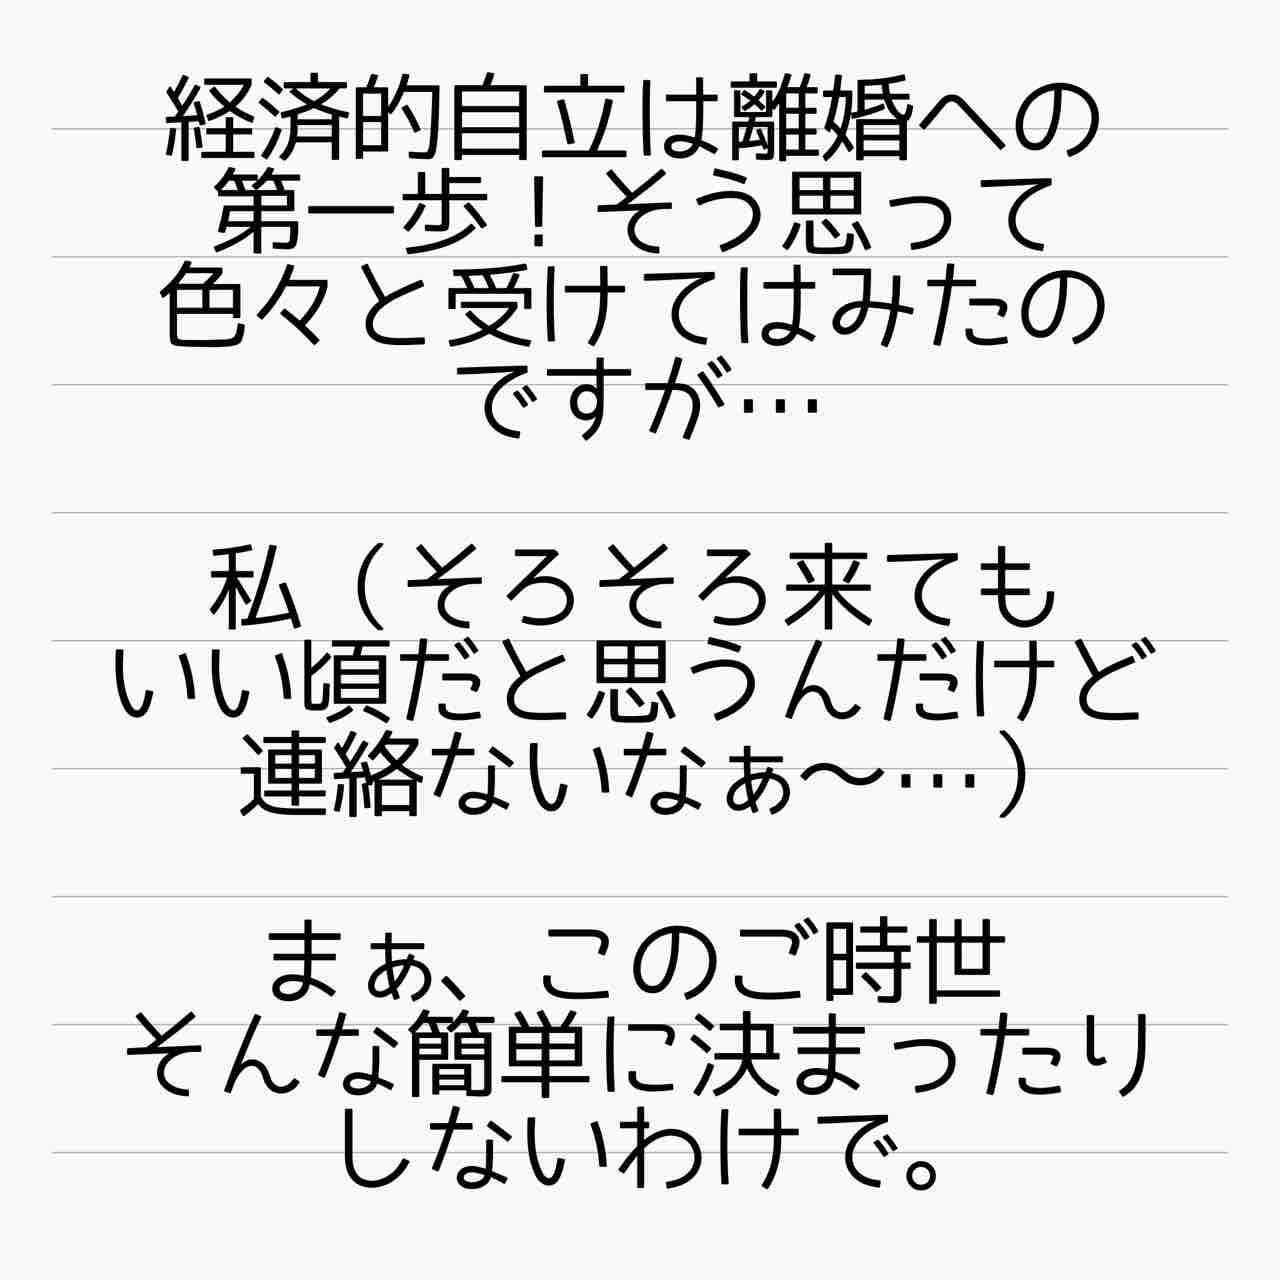 経済的自立は離婚への
第一歩！そう思って
色々と受けてはみたの
ですが…
私（そろそろ来ても
いい頃だと思うんだけど
連絡ないなぁ〜…）
まぁ、このご時世
そんな簡単に決まったり
しないわけで。